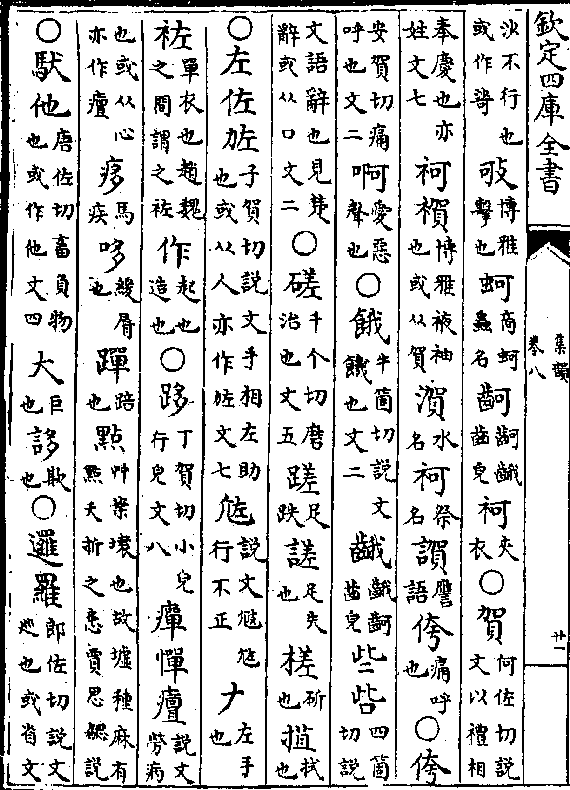 欽定四庫全書
集韻
卷八
廿一
沙不行也或作 㪃博雅擊也蚵商蚵蟲名䶗䶗䶥齒皃袔夾衣○賀何佐切說文以禮相
奉慶也亦姓文七袔䙎博雅袯袖也或从賀㵑水名祠祭名 語侉痛呼也○侉
安賀切痛呼也文二啊愛惡聲也○餓牛箇切說文饑也文二䶥䶥䶗齒皃些㱔四箇切說
文語辭也見楚辭或从口文二○磋千个切磨治也文五蹉足跌謎足失也槎斫也 拭也
○左佐㔫子賀切說文手相左助也或从人亦作㔫文七㝾說文㝾㝾行不正𠂇左手也
袏單衣也趙魏之間謂之袏作起也造也○跢丁賀切小兒行皃文八癉憚㿉說文勞病
也或从心亦作㿉痑馬疾哆緩脣也蹕踣也點艸葉壞也故墟種麻有點夭折之患賈思勰說
○馱他唐佐切畜負物也或作他文四大巨也誃欺也○邏羅郎佐切說文巡也或省文